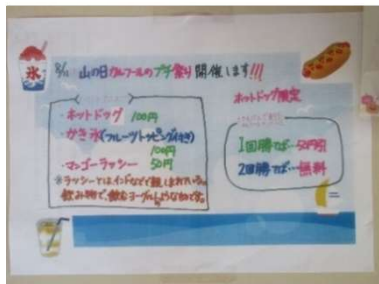 氷
8/11 山の日カルフールのプチ祭り開催します!!!
・ホットドッグ 100円
・かき氷(フルーツトッピング付き)
100円
・マンゴーラッシー 50円
※ラッシーとは、インドなどで親しまれている
飲み物で、飲むヨーグルトのようなものです。
ホットドッグ限定
1回勝てば…50円引
2回勝てば…無料